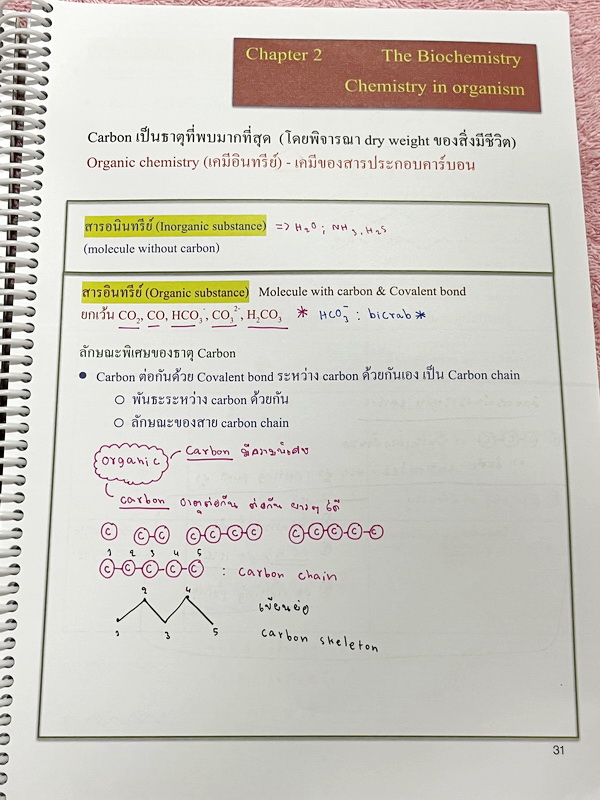 Chapter 2 The Biochemistry
Chemistry in organism
Carbon เป็นธาตุที่พบมากที่สุด (โดยพิจารณา dry weight ของสิ่งมีชีวิต)
Organic chemistry (เคมีอินทรีย์) - เคมีของสารประกอบคาร์บอน
สารอนินทรีย์ (Inorganic substance) => H₂O ; NH₃, H₂S
(molecule without carbon)
สารอินทรีย์ (Organic substance) Molecule with carbon & Covalent bond
ยกเว้น CO₂, CO, HCO₃⁻, CO₃²⁻, H₂CO₃ * HCO₃⁻ : bicrab *
ลักษณะพิเศษของธาตุ Carbon
● Carbon ต่อกันด้วย Covalent bond ระหว่าง carbon ด้วยกันเอง เป็น Carbon chain
○ พันธะระหว่าง carbon ด้วยกัน
○ ลักษณะของสาย carbon chain
Organic Carbon มีความพิเศษ
carbon ธาตุต่อกัน ต่อกัน ยาวๆ ได้
C C-C C-C-C-C C-C-C-C-C
1 2 3 4 5
C-C-C-C-C : carbon chain
2 4
1 3 5
เขียนย่อ
carbon skeleton
31